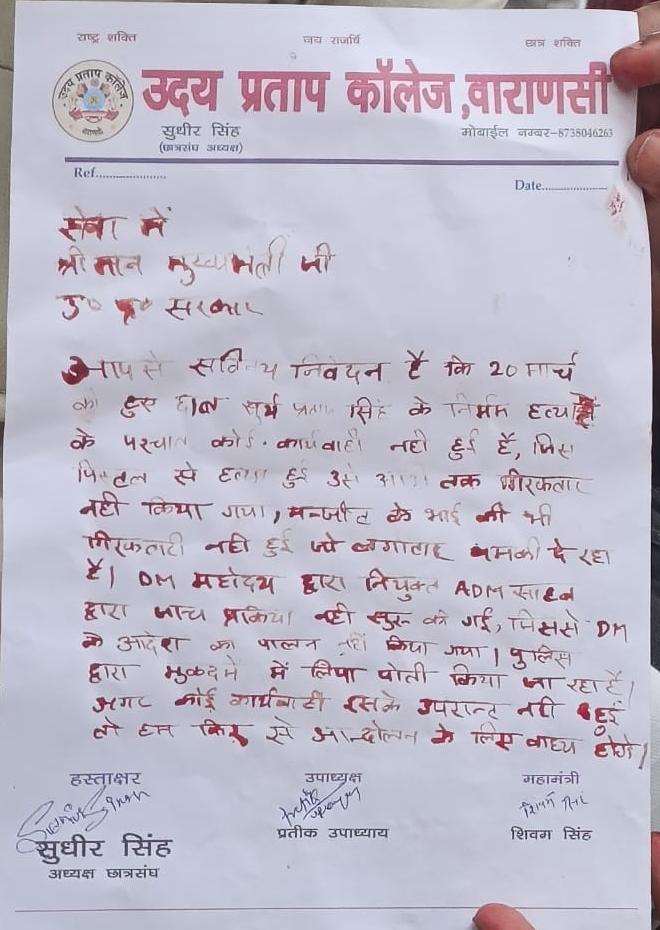 राष्ट्र शक्ति जय राजर्षि छात्र शक्ति
उदय प्रताप कॉलेज,वाराणसी
उदय प्रताप कॉलेज
वाराणसी
सुधीर सिंह मोबाईल नम्बर-8738046263
(छात्रसंघ अध्यक्ष)
Ref..................... Date.....................
सेवा में
श्री मान मुख्यमंत्री जी
उ० प्र० सरकार
आप से सविनय निवेदन है कि 20 मार्च
को हुए छात्र सूर्य प्रताप सिंह के निर्मम हत्या
के पश्चात कोई कार्यवाही नही हुई है, जिस
पिस्तल से हत्या हुई उसे आज तक गीरफतार
नही किया गया, मन्जीत के भाई की भी
गिरफतारी नही हुई जो लगातार धमकी दे रहा
है। DM महोदय द्वारा नियुक्त ADM साहब
द्वारा जाच प्रकिया नही सुरु की गई, जिससे DM
के आदेश का पालन नहीं किया गया। पुलिस
द्वारा मुकदमे में लिपा पोती किया जा रहा है।
अगर कोई कार्यवाही इसके उपरान्ट नही हुई
तो हम फिर से आन्दोलन के लिए बाध्य होंगे।
हस्ताक्षर उपाध्यक्ष महामंत्री
सुधीर सिंह प्रतीक उपाध्याय शिवम सिंह
अध्यक्ष छात्रसंघ